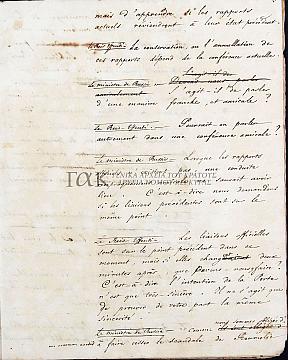 mais d'apprendre si les rapports
actuels reviendront à leur état précédent.
Le Reis-Efendi. La conservation ou l'annullation de
ces rapports dépend de la conférence actuelle.
Le ministre de Russie. s'agit-il de
s'agit il de parler
d'une manière franche et amicale?
Le Reis-Efendi. Pourrait-on parler
autrement dans une conférence amicale?
Le ministre de Russie. Lorsque les rapports
pas une conduite
avoir
lieu. C'est-à-dire nous demandons
si les liaisons précédentes sont sur le
même point
ΓΑΚ ΓΕΝΙΚΑ ΑΡΧΕΙΑ ΤΟΥ ΚΡΑΤΟΥΣ
ΑΡΧΕΙΑ ΝΟΜΟΥ
Le Reis-Efendi. Les liaisons officielles
sont sur le point précédent dans ce
moment, mais si elles changent deux
minutes après, que pouvons nous faire?
C'est à dire l'intention de la Porte
n'est que très sincère. Il ne s'agit que
de prouver de votre part la même
sincérité.
Le ministre de Russie. Comme nous sommes obligés
à faire cesser le scandale de